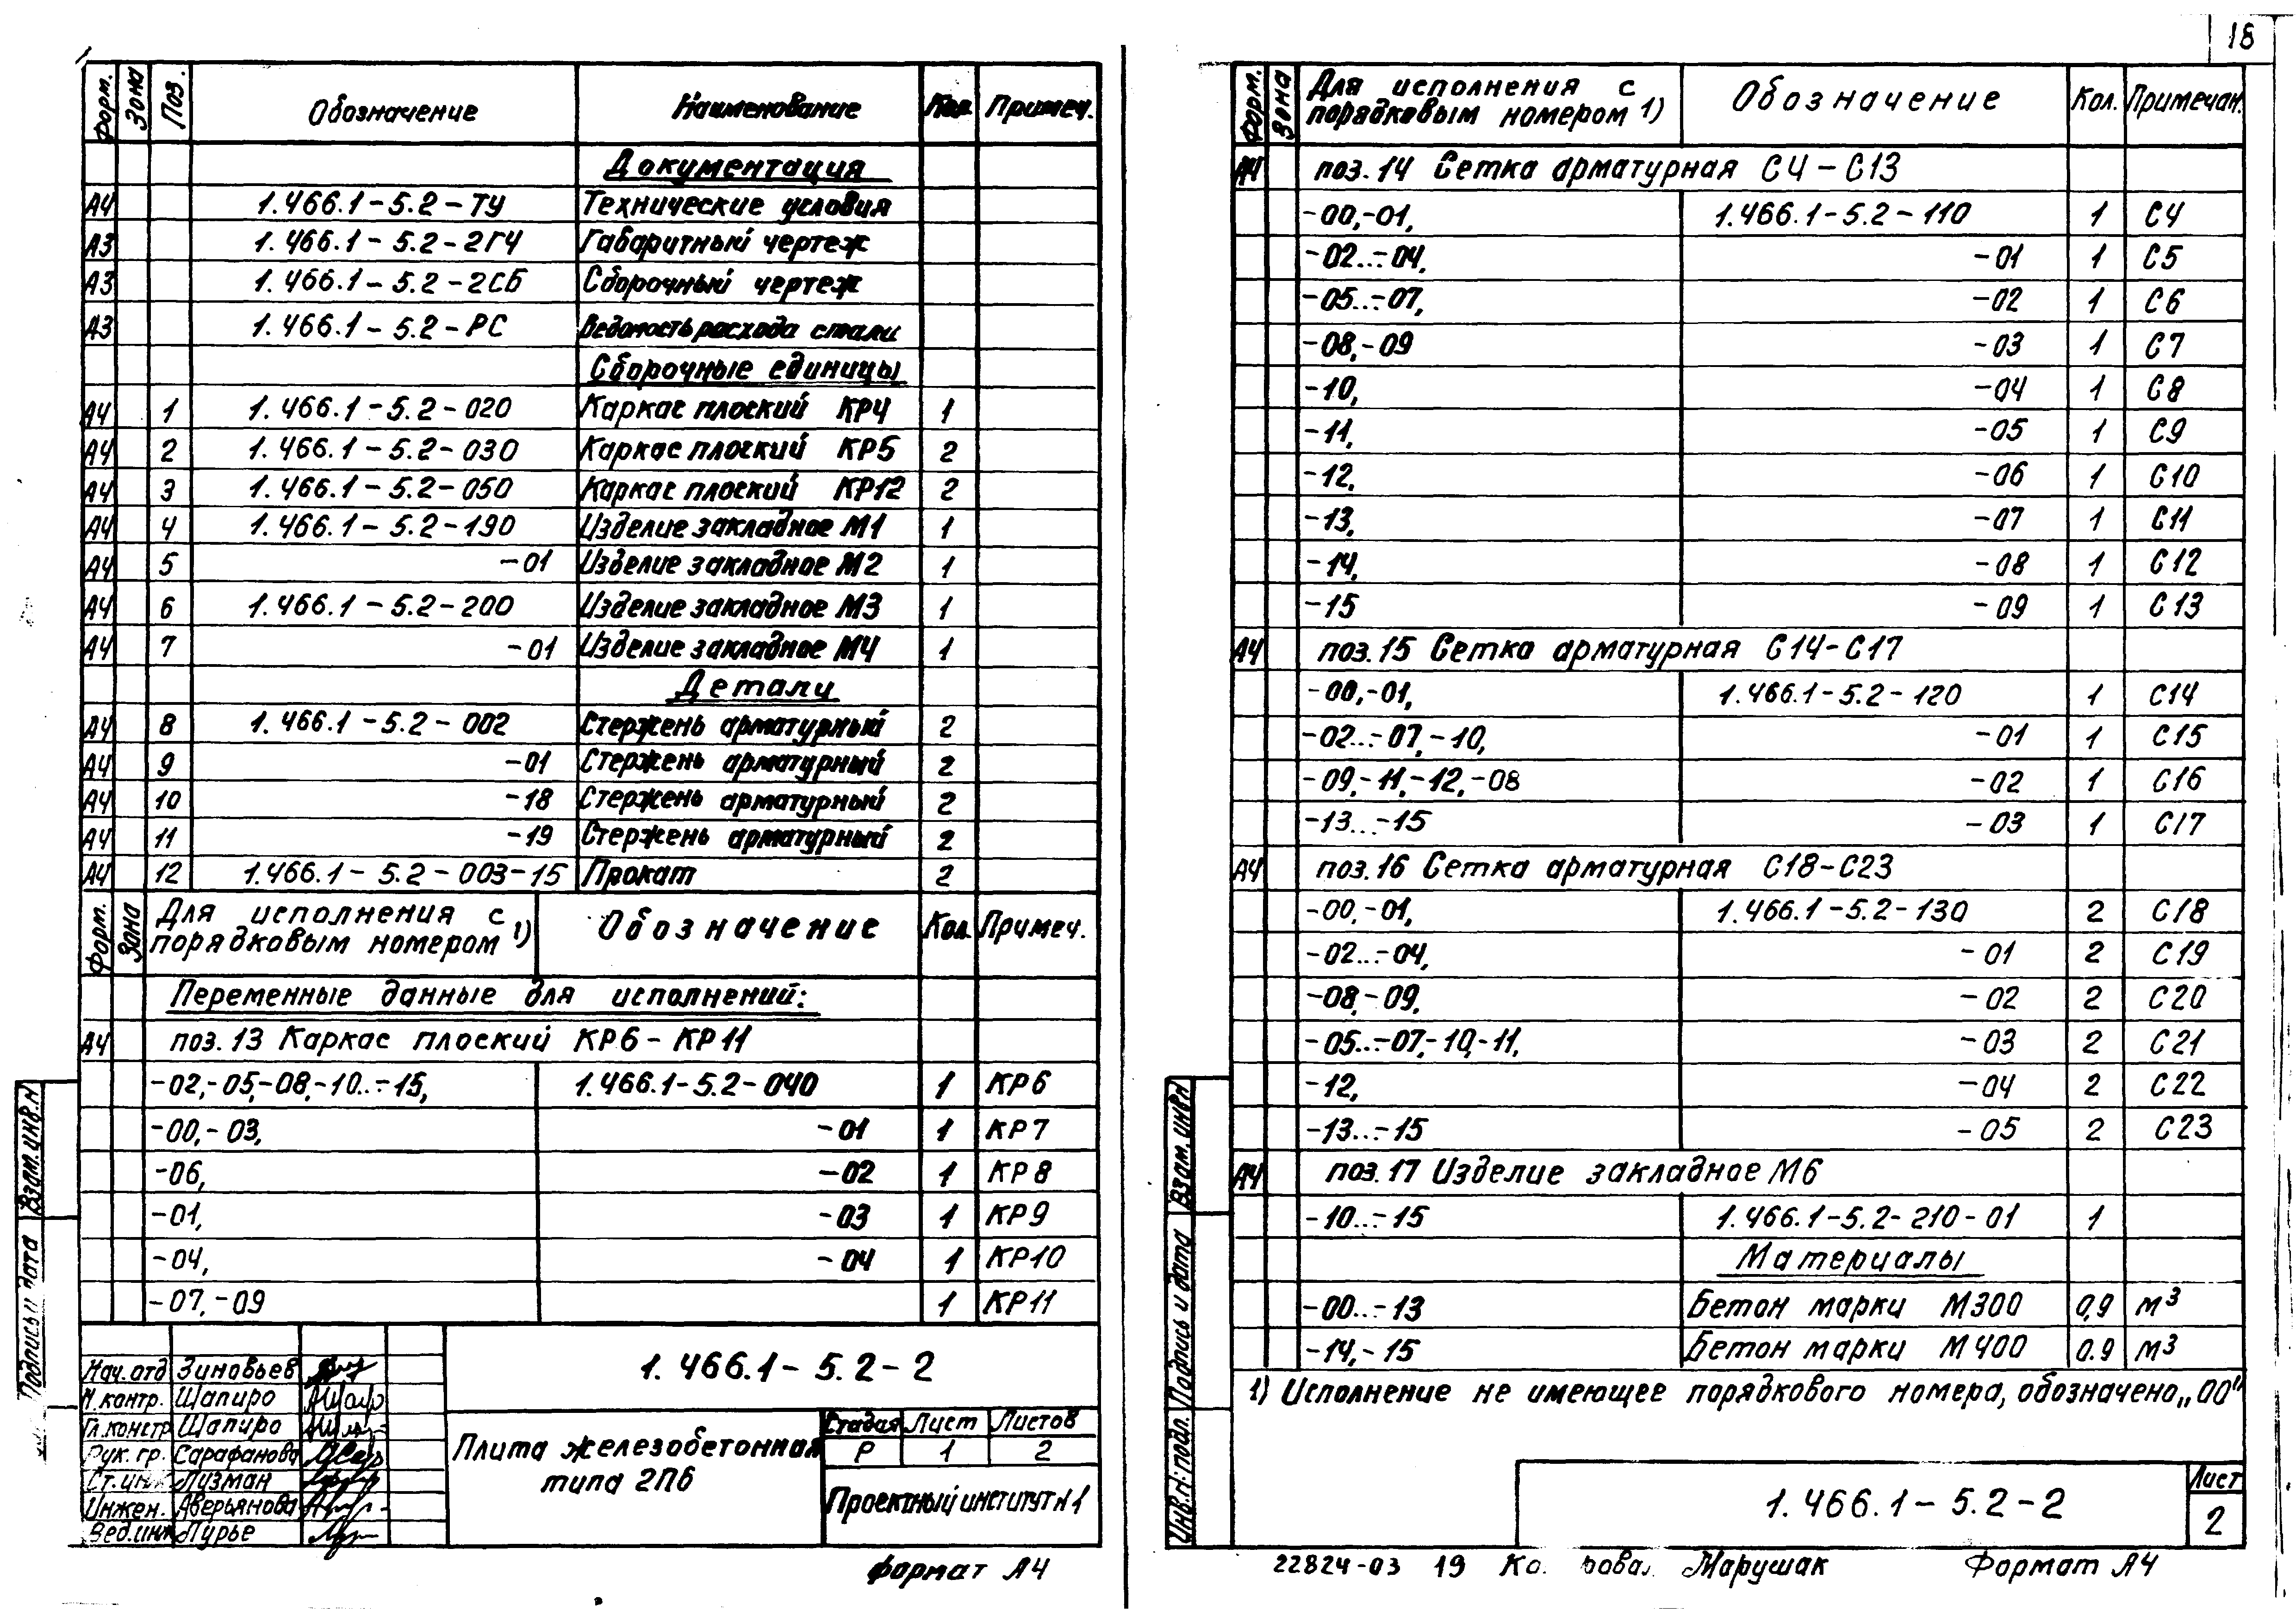 18
Форм. Зона Поз. Обозначение Наименование Кол. Примеч.
Документация
А4 1.466.1-5.2-ТУ Технические условия
А3 1.466.1-5.2-2ГЧ Габаритный чертеж
А3 1.466.1-5.2-2СБ Сборочный чертеж
А3 1.466.1-5.2-РС Ведомость расхода стали
Сборочные единицы
А4 1 1.466.1-5.2-020 Каркас плоский КР4 1
А4 2 1.466.1-5.2-030 Каркас плоский КР5 2
А4 3 1.466.1-5.2-050 Каркас плоский КР12 2
А4 4 1.466.1-5.2-190 Изделие закладное М1 1
А4 5 -01 Изделие закладное М2 1
А4 6 1.466.1-5.2-200 Изделие закладное М3 1
А4 7 -01 Изделие закладное М4 1
Детали
А4 8 1.466.1-5.2-002 Стержень арматурный 2
А4 9 -01 Стержень арматурный 2
А4 10 -18 Стержень арматурный 2
А4 11 -19 Стержень арматурный 2
А4 12 1.466.1-5.2-003-15 Прокат 2
Форм. Зона Для исполнения с порядковым номером 1) Обозначение Кол. Примеч.
Переменные данные для исполнений:
А4 поз.13 Каркас плоский КР6-КР11
-02,-05,-08,-10...-15, 1.466.1-5.2-040 1 КР6
-00,-03, -01 1 КР7
-06, -02 1 КР8
-01, -03 1 КР9
-04, -04 1 КР10
-07,-09 1 КР11
Взам.инв.N
Подпись и дата
Нач.отд Зиновьев
Н.контр. Шапиро
Гл.констр Шапиро
Рук. гр. Сарафанова
Ст.инж Лузман
Инжен. Аверьянова
Вед.инж Лурье
1.466.1-5.2-2
Плита железобетонная
типа 2П6
Стадия Лист Листов
Р 1 2
Проектный институт N1
Формат А4
Форм. Зона Для исполнения с порядковым номером 1) Обозначение Кол. Примечан.
А4 поз.14 Сетка арматурная С4-С13
-00,-01, 1.466.1-5.2-110 1 С4
-02...-04, -01 1 С5
-05...-07, -02 1 С6
-08,-09 -03 1 С7
-10, -04 1 С8
-11, -05 1 С9
-12, -06 1 С10
-13, -07 1 С11
-14, -08 1 С12
-15 -09 1 С13
А4 поз.15 Сетка арматурная С14-С17
-00,-01, 1.466.1-5.2-120 1 С14
-02...-07,-10, -01 1 С15
-09,-11,-12,-08 -02 1 С16
-13...-15 -03 1 С17
А4 поз.16 Сетка арматурная С18-С23
-00,-01, 1.466.1-5.2-130 2 С18
-02...-04, -01 2 С19
-08,-09, -02 2 С20
-05...-07,-10,-11, -03 2 С21
-12, -04 2 С22
-13...-15 -05 2 С23
А4 поз.17 Изделие закладное М6
-10...-15 1.466.1-5.2-210-01 1
Материалы
-00...-13 Бетон марки М300 0,9 м³
-14,-15 Бетон марки М400 0.9 м³
1) Исполнение не имеющее порядкового номера, обозначено „00"
Взам. инв.N
Подпись и дата
Инв.N: подл.
1.466.1-5.2-2
Лист
2
22824-03 19 Марушак Формат А4